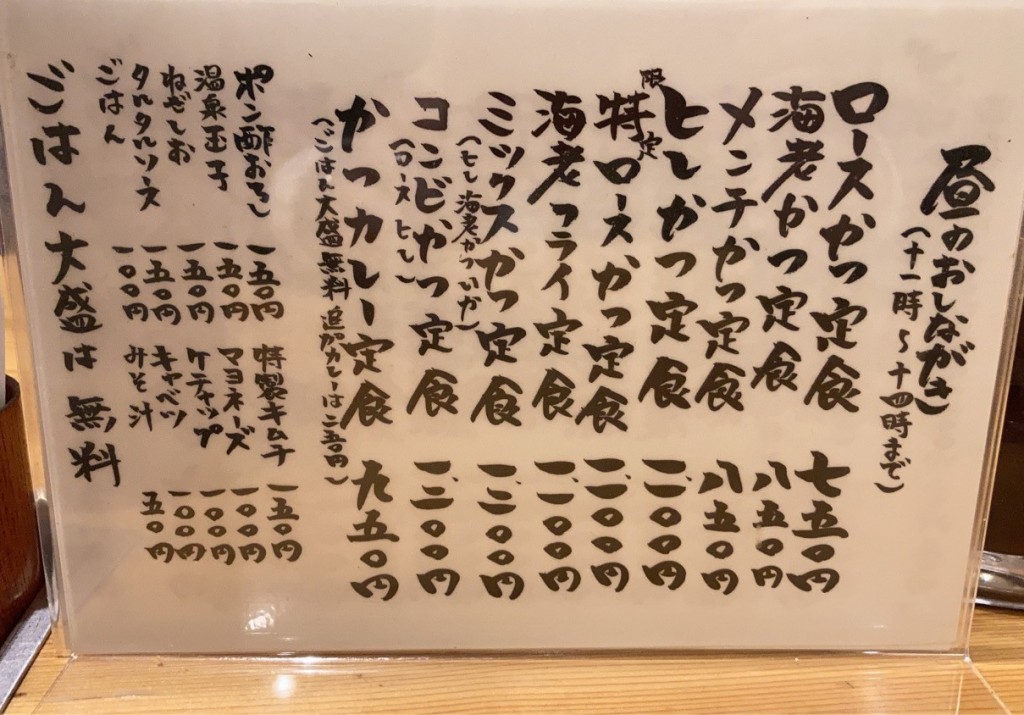 昼のおしながき
(十一時~十四時まで)
ロースかつ定食 七五〇円
海老かつ定食 八五〇円
メンチかつ定食 八五〇円
ヒレかつ定食 一、一〇〇円
限定
特ロースかつ定食 一、一〇〇円
海老フライ定食 一、一〇〇円
ミックスかつ定食 一、二〇〇円
(ヒレ 海老かつ いか)
コンビかつ定食 一、二〇〇円
(ロース ヒレ)
かつカレー定食 九五〇円
(ごはん大盛無料 追がカレーは二五〇円)
ポン酢おろし 一五〇円
温泉玉子 一五〇円
ねぎしお 一五〇円
タルタルソース 一五〇円
ごはん 一〇〇円
特製キムチ 一五〇円
マヨネーズ 一〇〇円
ケチャップ 一〇〇円
キャベツ 一〇〇円
みそ汁 五〇円
ごはん大盛は無料